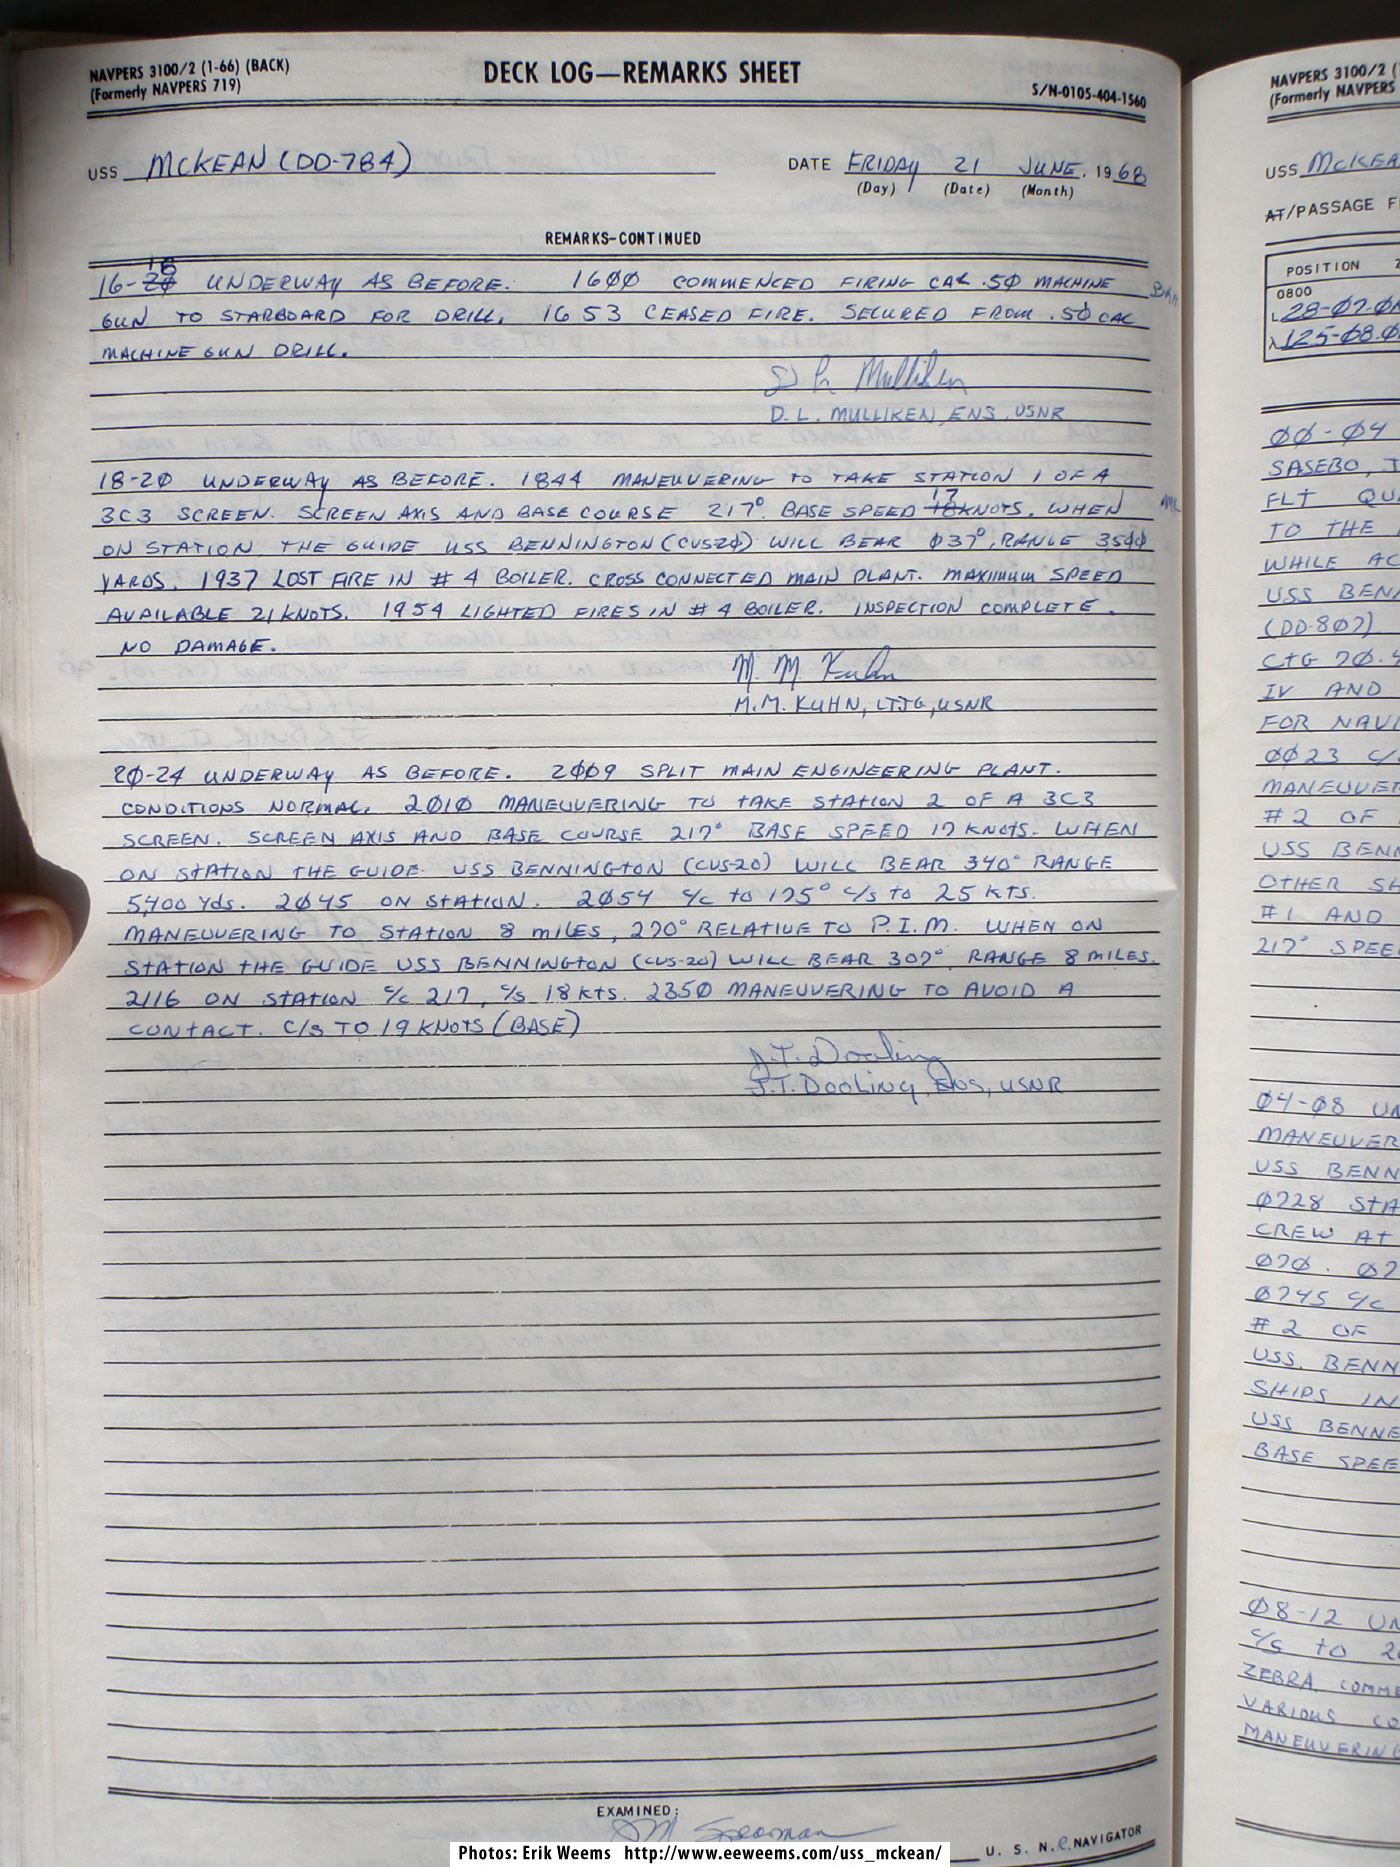 NAVPERS 3100/2 (1-66) (BACK)
(Formerly NAVPERS 719)
DECK LOG—REMARKS SHEET
S/N-0105-404-1560
USS MCKEAN (DD-784)
DATE FRIDAY 21 JUNE, 19 68
(Day) (Date) (Month)
REMARKS-CONTINUED
16-20 18 UNDERWAY AS BEFORE. 16ØØ COMMENCED FIRING CAL .5Ø MACHINE
GUN TO STARBOARD FOR DRILL, 1653 CEASED FIRE. SECURED FROM .5Ø CAL
MACHINE GUN DRILL.
D L Mulliken
D.L. MULLIKEN, ENS, USNR
18-2Ø UNDERWAY AS BEFORE. 1844 MANEUVERING TO TAKE STATION 1 OF A
3C3 SCREEN. SCREEN AXIS AND BASE COURSE 217° BASE SPEED 18 17 KNOTS. WHEN
ON STATION THE GUIDE USS BENNINGTON (CVS-2Ø) WILL BEAR Ø37°, RANGE 35ØØ
YARDS. 1937 LOST FIRE IN # 4 BOILER. CROSS CONNECTED MAIN PLANT. MAXIMUM SPEED
AVAILABLE 21 KNOTS. 1954 LIGHTED FIRES IN # 4 BOILER. INSPECTION COMPLETE.
NO DAMAGE.
M. M. Kuhn
M.M. KUHN, LTJG, USNR
2Ø-24 UNDERWAY AS BEFORE. 2ØØ9 SPLIT MAIN ENGINEERING PLANT.
CONDITIONS NORMAL. 2Ø1Ø MANEUVERING TO TAKE STATION 2 OF A 3C3
SCREEN. SCREEN AXIS AND BASE COURSE 217° BASE SPEED 17 KNOTS. WHEN
ON STATION THE GUIDE USS BENNINGTON (CVS-20) WILL BEAR 340° RANGE
5,400 Yds. 2Ø45 ON STATION. 2Ø54 c/c to 175° c/s to 25 KTS.
MANEUVERING TO STATION 8 MILES, 270° RELATIVE TO P.I.M. WHEN ON
STATION THE GUIDE USS BENNINGTON (CVS-20) WILL BEAR 307° RANGE 8 MILES.
2116 ON STATION c/c 217, c/s 18 KTS. 235Ø MANEUVERING TO AVOID A
CONTACT. C/S TO 19 KNOTS (BASE)
J.T. Dooling
J.T. DOOLING, ENS, USNR
EXAMINED:
Spearman
U. S. N. R NAVIGATOR
NAVPERS 3100/2 (
(Formerly NAVPERS
USS McKEA
AT/PASSAGE F
POSITION
0800
L 28-07.0
λ 125-08.0
ØØ-Ø4
SASEBO, J
FLT QU
TO THE
WHILE AC
USS BEN
(DD-807)
CTG 70.4
IV AND
FOR NAV
ØØ23 c/
MANEUVER
#2 OF
USS BEN
OTHER SH
#1 AND
217° SPEE
Ø4-Ø8 UN
MANEUVER
USS BENN
Ø728 STA
CREW AT
Ø7Ø. Ø7
Ø745 c/c
#2 OF
USS. BENN
SHIPS IN
USS BENNE
BASE SPEE
Ø8-12 UN
c/s to 2
ZEBRA COMME
VARIOUS CO
MANEUVERING
Photos: Erik Weems http://www.eeweems.com/uss_mckean/